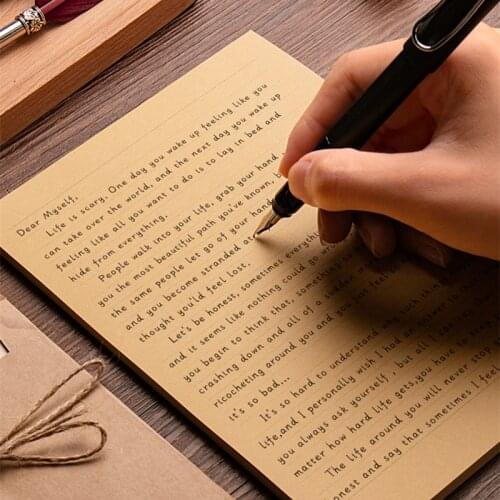 Dear Myself,
Life is scary. One day you wake up feeling like you
can take over the world, and the next day you wake up
feeling like all you want to do is to lay in bed and
hide from everything.
People walk into your life, grab your hand,
you the most beautiful path you've known,
the same people let go of your hand
and you become stranded
thought you'ld feel lost.
Let's be honest, sometimes everything
and it seems like nothing could go
you begin to think that, something
crashing down and all of a sudden,
ricocheting around you and you just feel
it's so bad...
It's so hard to understand why such
life,and I personally wish I had an answer
you always ask yourself , but all I can say
matter how hard life gets,you have to
The life around you will never stop
onest and say that sometimes I feel